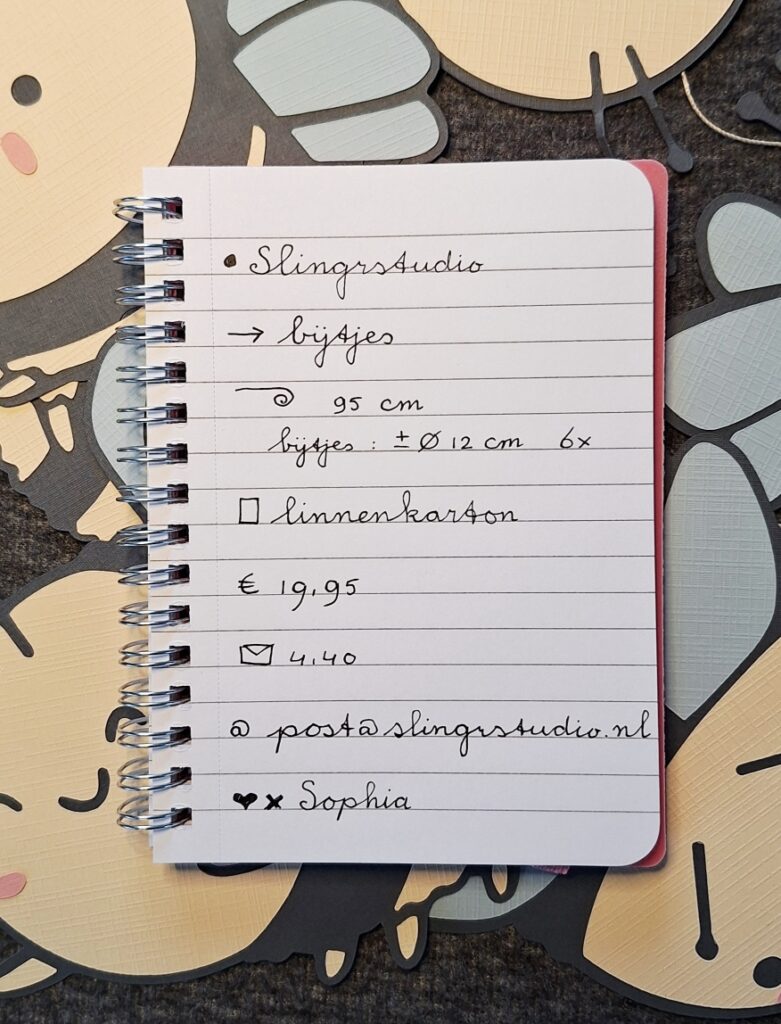 • Slingrstudio
→ bijtjes
95 cm
bijtjes : ± Ø 12 cm 6x
linnenkarton
€ 19,95
4,40
@ post@slingrstudio.nl
♥x Sophia